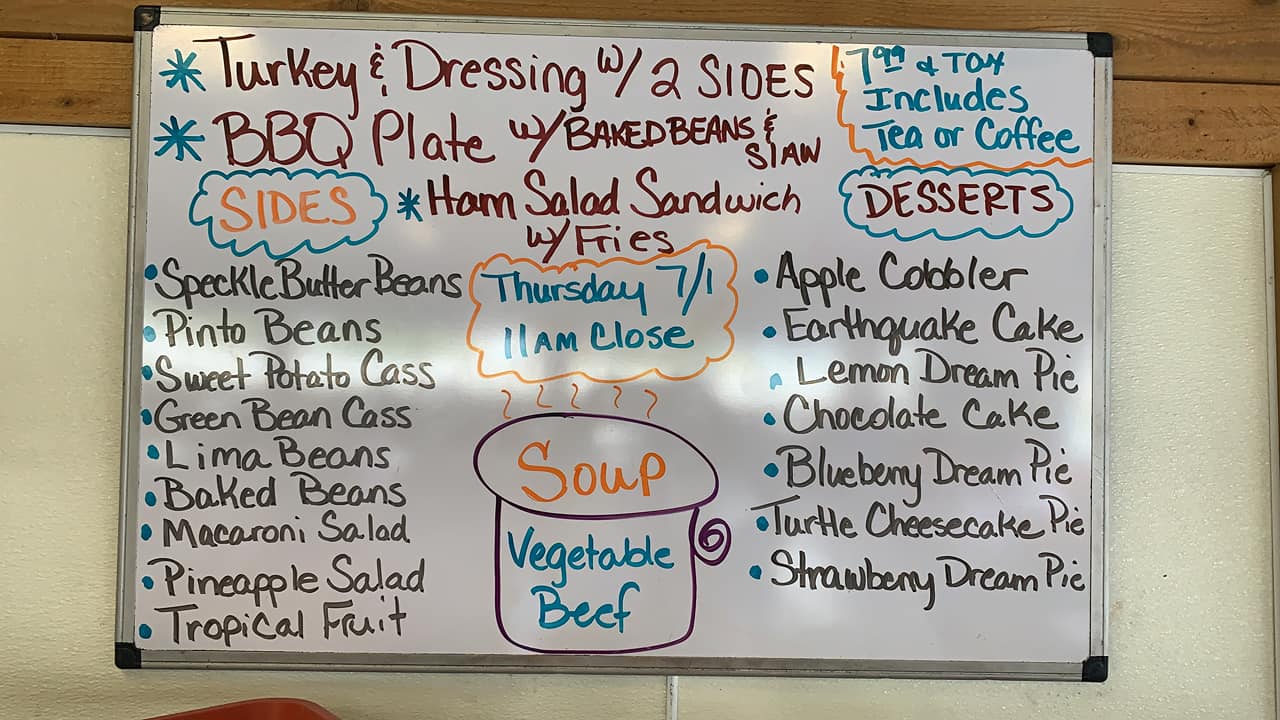 * Turkey & Dressing w/ 2 SIDES
* BBQ Plate w/ BAKED BEANS &
SlAW
* Ham Salad Sandwich
w/ Fries
7.99 & TAX
Includes
Tea or Coffee
SIDES
• Speckle Butter Beans
• Pinto Beans
• Sweet Potato Cass
• Green Bean Cass
• Lima Beans
• Baked Beans
• Macaroni Salad
• Pineapple Salad
• Tropical Fruit
Thursday 7/1
11AM Close
Soup
Vegetable
Beef
DESSERTS
• Apple Cobbler
• Earthquake Cake
• Lemon Dream Pie
• Chocolate Cake
• Blueberry Dream Pie
• Turtle Cheesecake Pie
• Strawberry Dream Pie